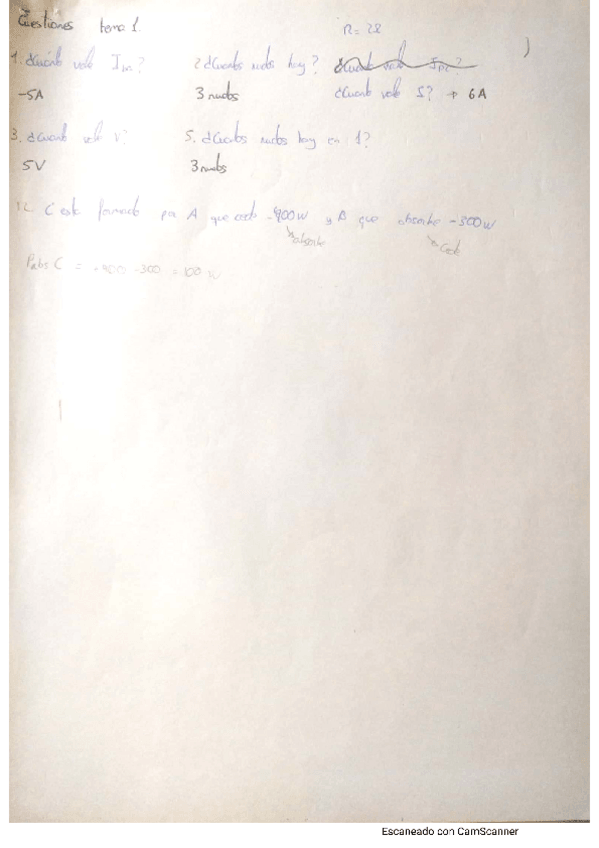 Cuestiones tema 1.
R = 22
1. ¿Cuánto vale I? 2 ¿Cuantos nudos hay? ¿Cuanto vale
-5A 3 nudos ¿Cuanto vale I? → 6A
3. ¿Cuanto vale V? 5. ¿Cuantos nudos hay en 1?
5V 3 nudos
12 C esta formado por A que cede -400w y A que absorbe -300w
absorbe Cede
Pabs C = 400 - 300 = 100 w
Escaneado con CamScanner